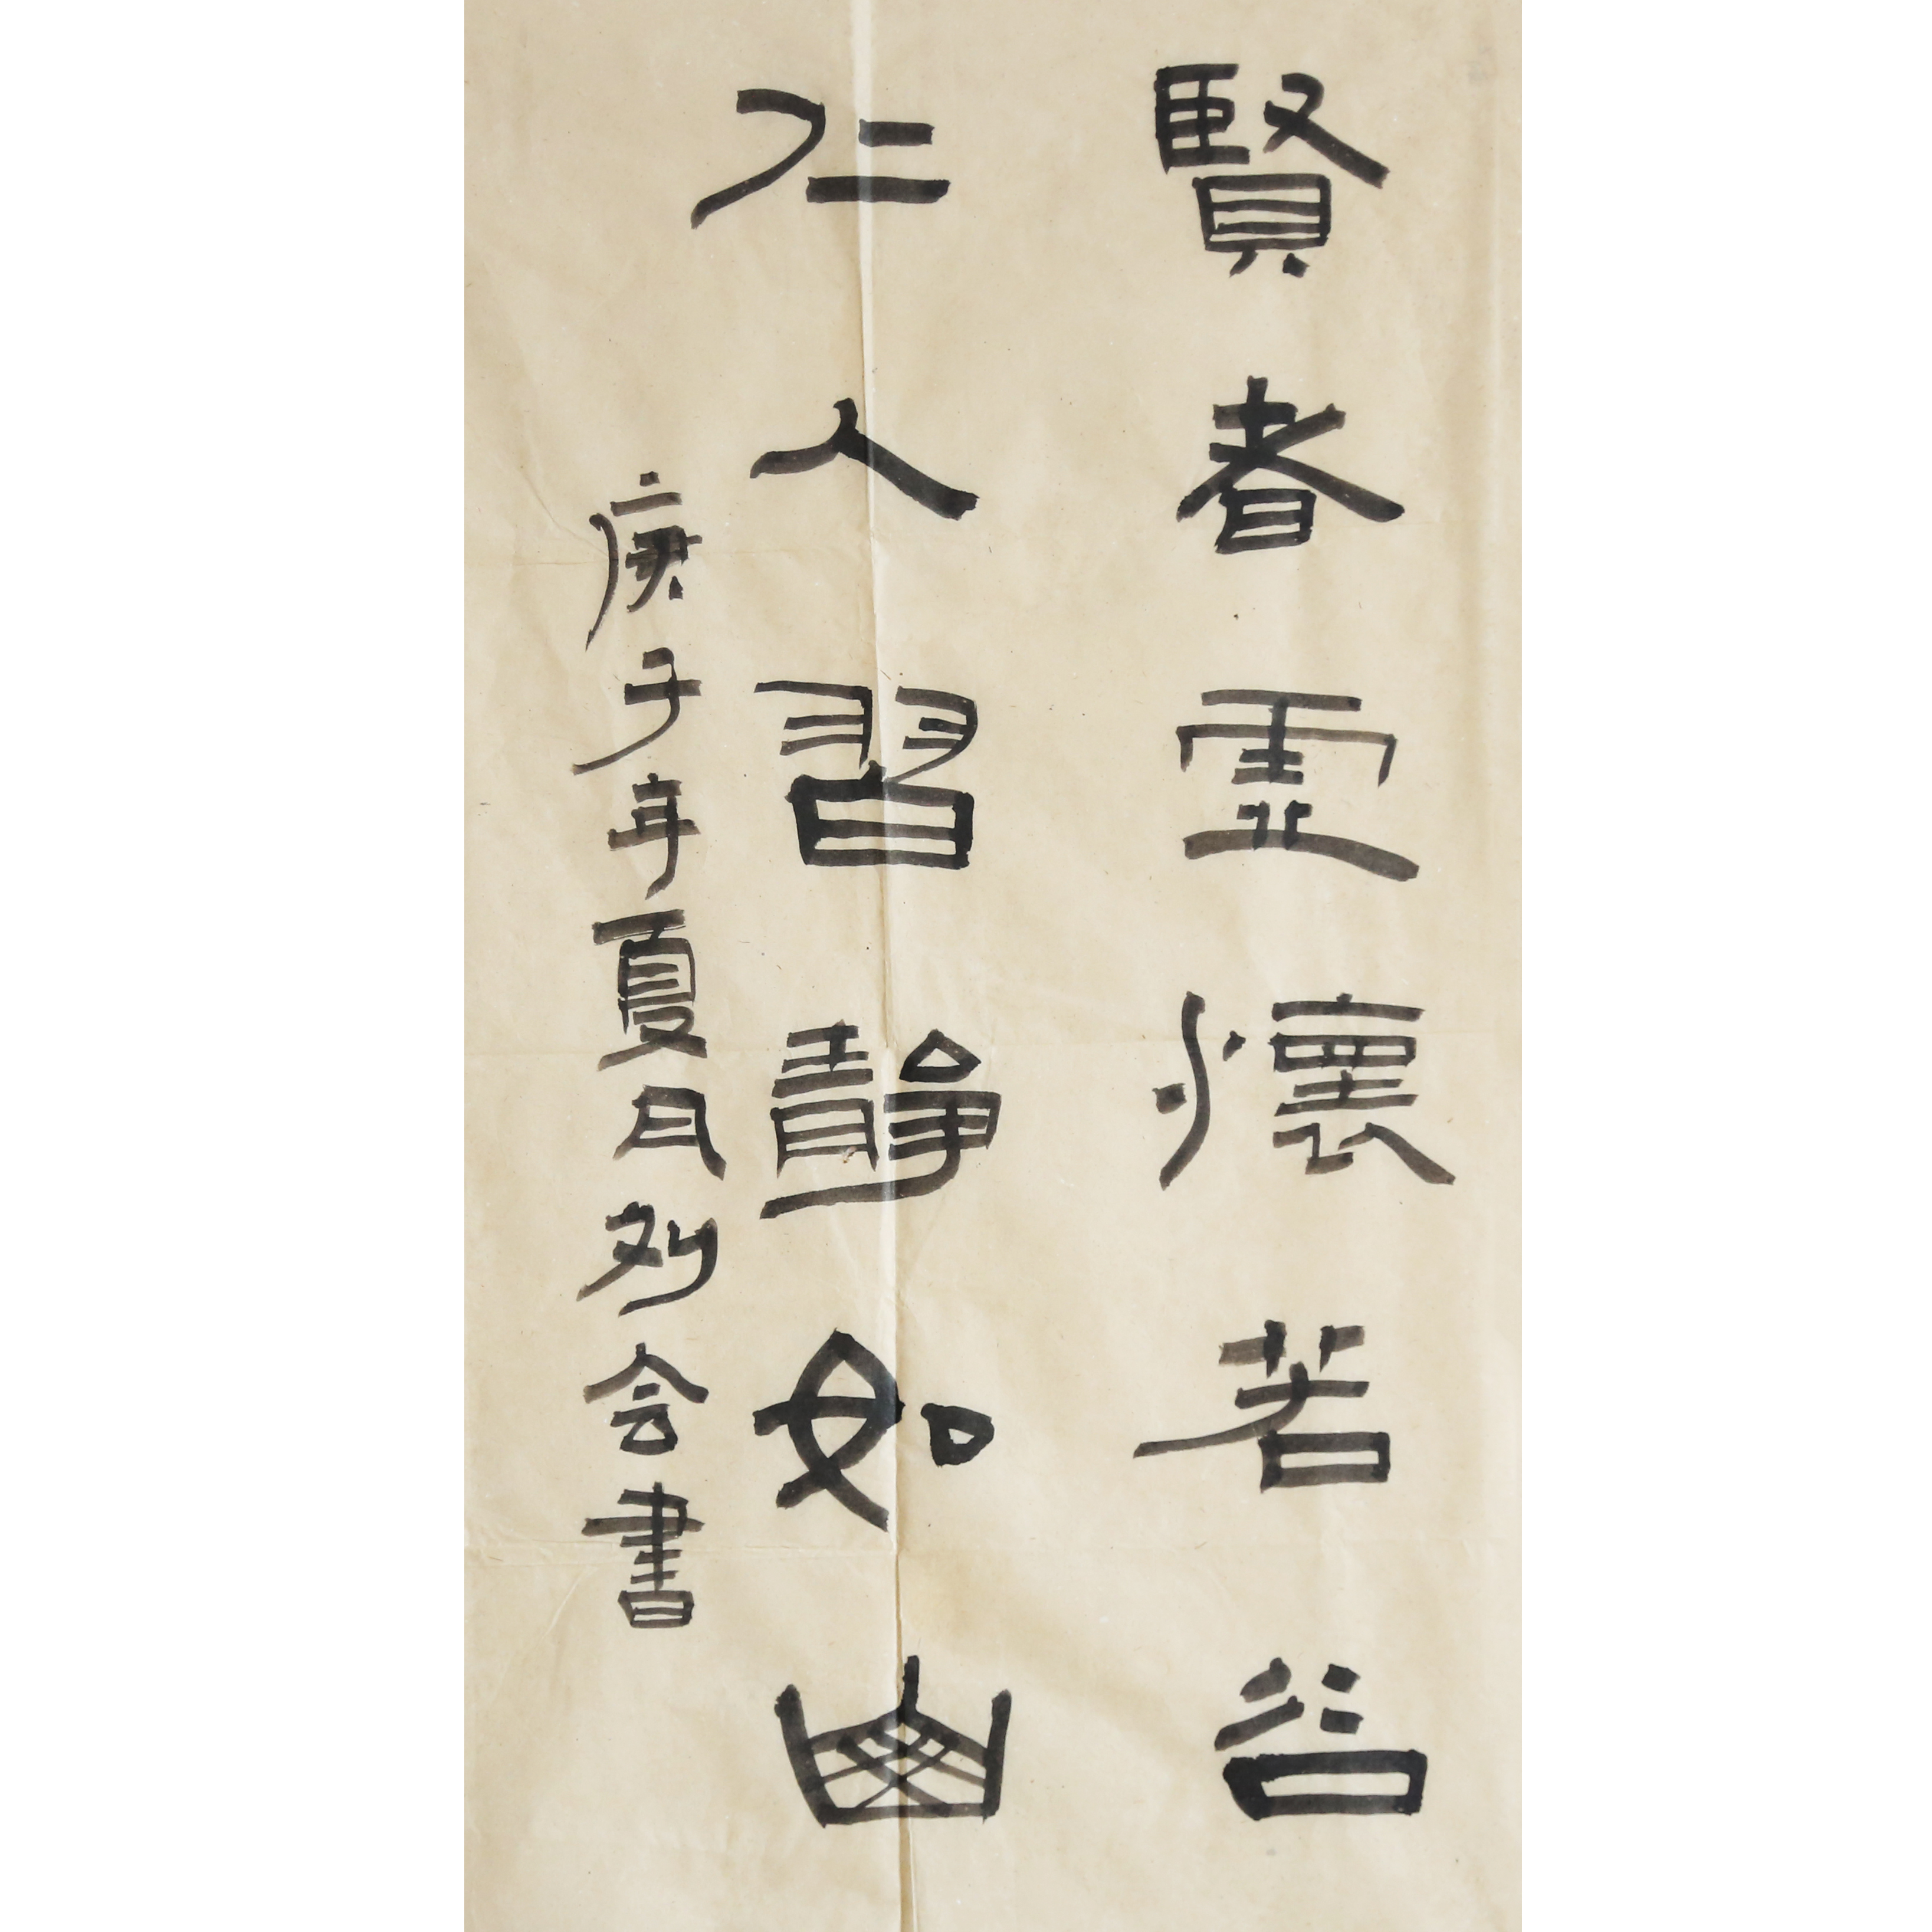 賢者虛懷若谷
仁人習靜如幽
庚子年夏月刘会書